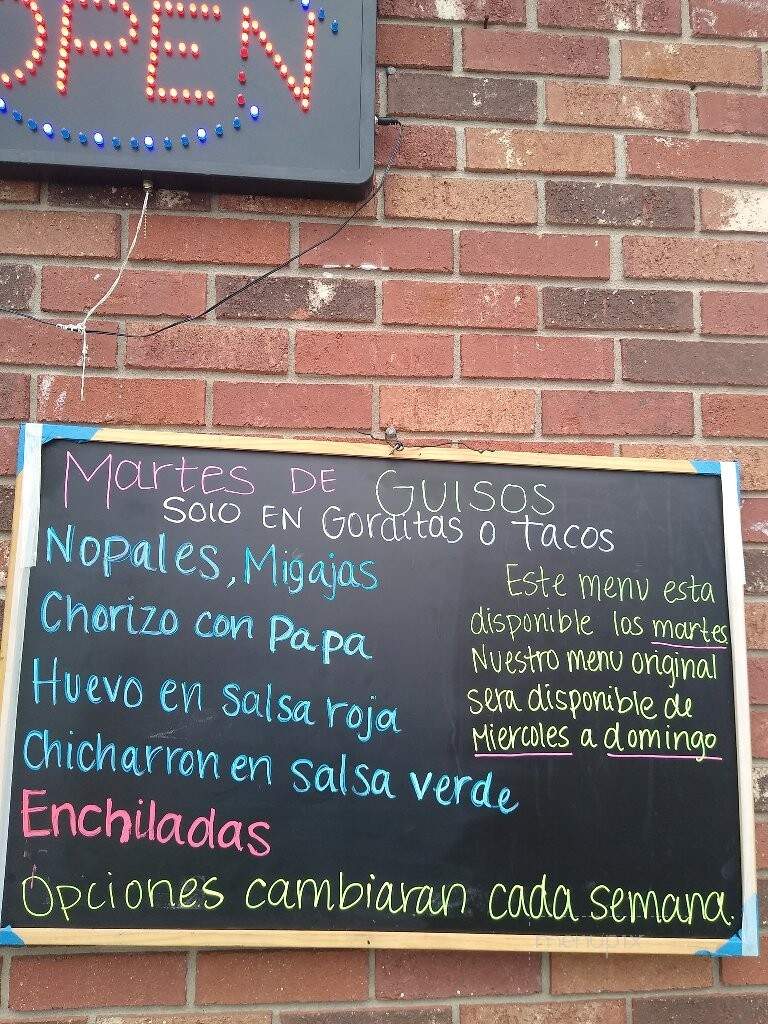 OPEN
Martes DE GUISOS
Solo EN Gorditas o tacos
Nopales, Migajas
Chorizo con papa
Huevo en salsa roja
Chicharron en salsa verde
Enchiladas
Este menu esta
disponible los martes
Nuestro menu original
sera disponible de
Miercoles a domingo
Opciones cambiaran cada semana.
menupix